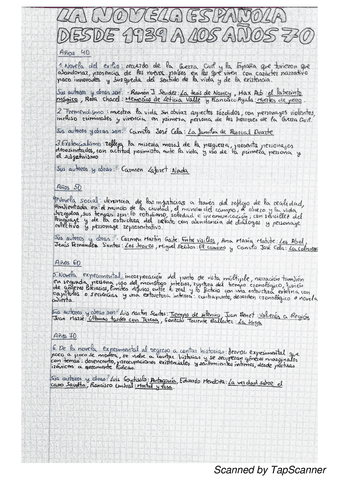 LA NOVELA ESPAÑOLA
DESDE 1939 A LOS AÑOS 70
Años 40
1. Novela del exilio: recuerdo de la Guerra Civil y la España que tuvieron que
abandonar, presencia de los países en los que viven con carácter narrativo
poco innovador y búsqueda del sentido de la vida y de la existencia.
Sus autores y obras son: Ramón J. Sender: La tesis de Nancy, Max Aub: el laberinto
mágico, Rosa Chacel: Memorias de Leticia Valle y Francisco Ayala: Muertes de perro.
2. Tremendismo: muestra la vida sin obviar aspectos sórdidos, con personajes violentos,
incluso criminales y viveza, en primera persona de los horrores de la Guerra Civil.
Sus autores y obras son: Camilo José Cela: La familia de Pascual Duarte
3. Existencialismo: refleja la miseria moral de la posguerra, presenta personajes
desorientados, con actitud pesimista ante la vida y uso de la primera persona y
el subjetivismo
Sus autores y obras: Carmen Laforet: Nada
Años 50
4. Novela social: denuncia de las injusticias a través del reflejo de la realidad,
ambientada en el mundo de la ciudad, el mundo del campo, el obrero y la vida
burguesa, sus temas son: lo cotidiano, soledad e incomunicación, con sencillez del
lenguaje y de la estructura del relato con abundancia de diálogos y personaje
colectivo y personaje representativo.
Sus autores y obras: Carmen Martín Gaite: Entre visillos, Ana María Matute: Los Abel,
Jesús Fernández Santos: Los bravos, Miguel Delibes: El camino y Camilo José Cela: La colmena
Años 60
5. Novela experimental: incorporación del punto de vista múltiple, narración también
en segunda persona, uso del monólogo interior, ruptura del tiempo cronológico, fusión
de géneros literarios, límites difusos entre la prosa y la poesía con una estructura externa con
capítulos o secuencias y una estructura interna: contrapunto, desorden cronológico o novela
abierta.
Sus autores y obras son: Luis Martín Santos: Tiempo de silencio, Juan Benet: Volverás a Región
Juan Marsé: Últimas tardes con Teresa, Gonzalo Torrente Ballester: La saga
Años 70
6. De la novela experimental al regreso a contar historias: novela experimental que
poco a poco se modera, se vuelve a contar historias y se recuperan géneros marginales
con temas: desencanto, preocupaciones existenciales y sentimientos íntimos, desde posturas
irónicas o meramente lúdicas.
Sus autores y obras: Luis Goytisolo: Antagonía, Eduardo Mendoza: La verdad sobre el
caso Savolta, Francisco Umbral: Mortal y rosa.
Scanned by TapScanner